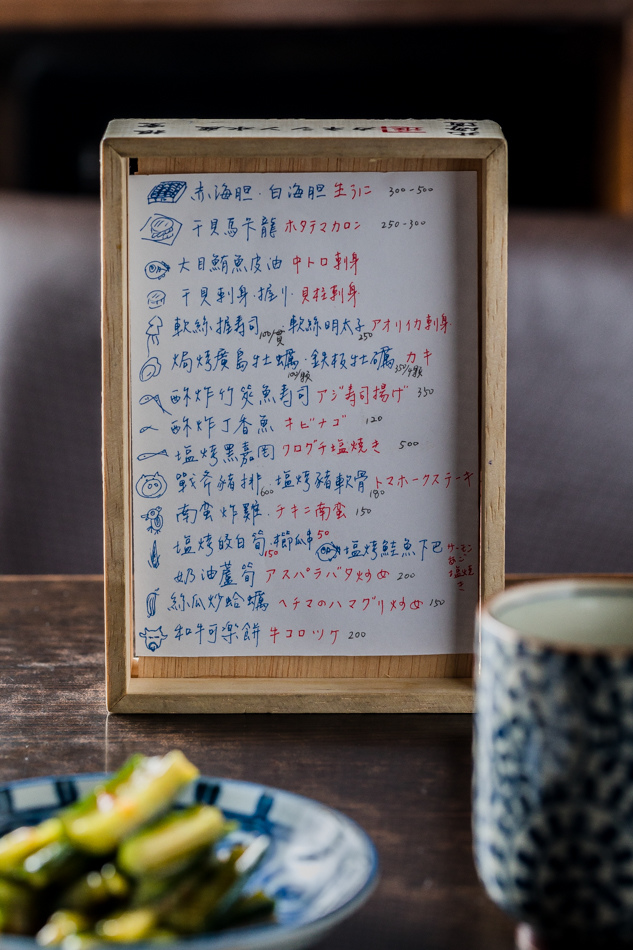 カネシン水産
赤海胆・白海胆 生うに 300-500
干貝馬卡龍 ホタテマカロン 250-300
大目鮪魚皮油 中トロ刺身
干貝刺身・握り・貝柱刺身
軟絲握壽司 100/貫・軟絲明太子 250 アオリイカ刺身
焗烤廣島牡蠣・鉄板牡蠣 カキ
酥炸竹筴魚寿司 アジ寿司揚げ 350
酥炸丁香魚 キビナゴ 120
塩烤黑嘉网 クログチ塩焼き 500
戰斧豬排 600・塩烤豬軟骨 180 トマホークステーキ
南蛮炸雞・チキニ南蛮 150
塩烤皎白筍 150・櫛瓜串 50 塩烤鮭魚下巴 サーモン あご 塩焼き
奶油蘆筍 アスパラバタ炒め 200
絲瓜炒蛤蠣 ヘチマのハマグリ炒め 150
和牛可楽餅 牛コロッケ 200